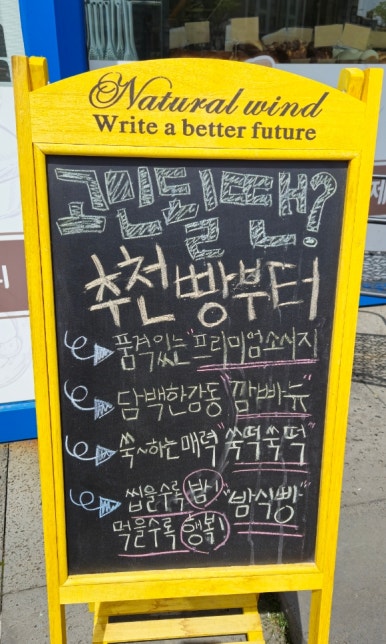 Natural wind
Write a better future
고민될땐?
추천빵부터
품격있는 "프리미엄소시지"
담백한감동 "깜빠뉴"
쑥~하는 매력 "쑥떡쑥떡"
씹을수록 밤! "밤식빵"
먹을수록 행복!